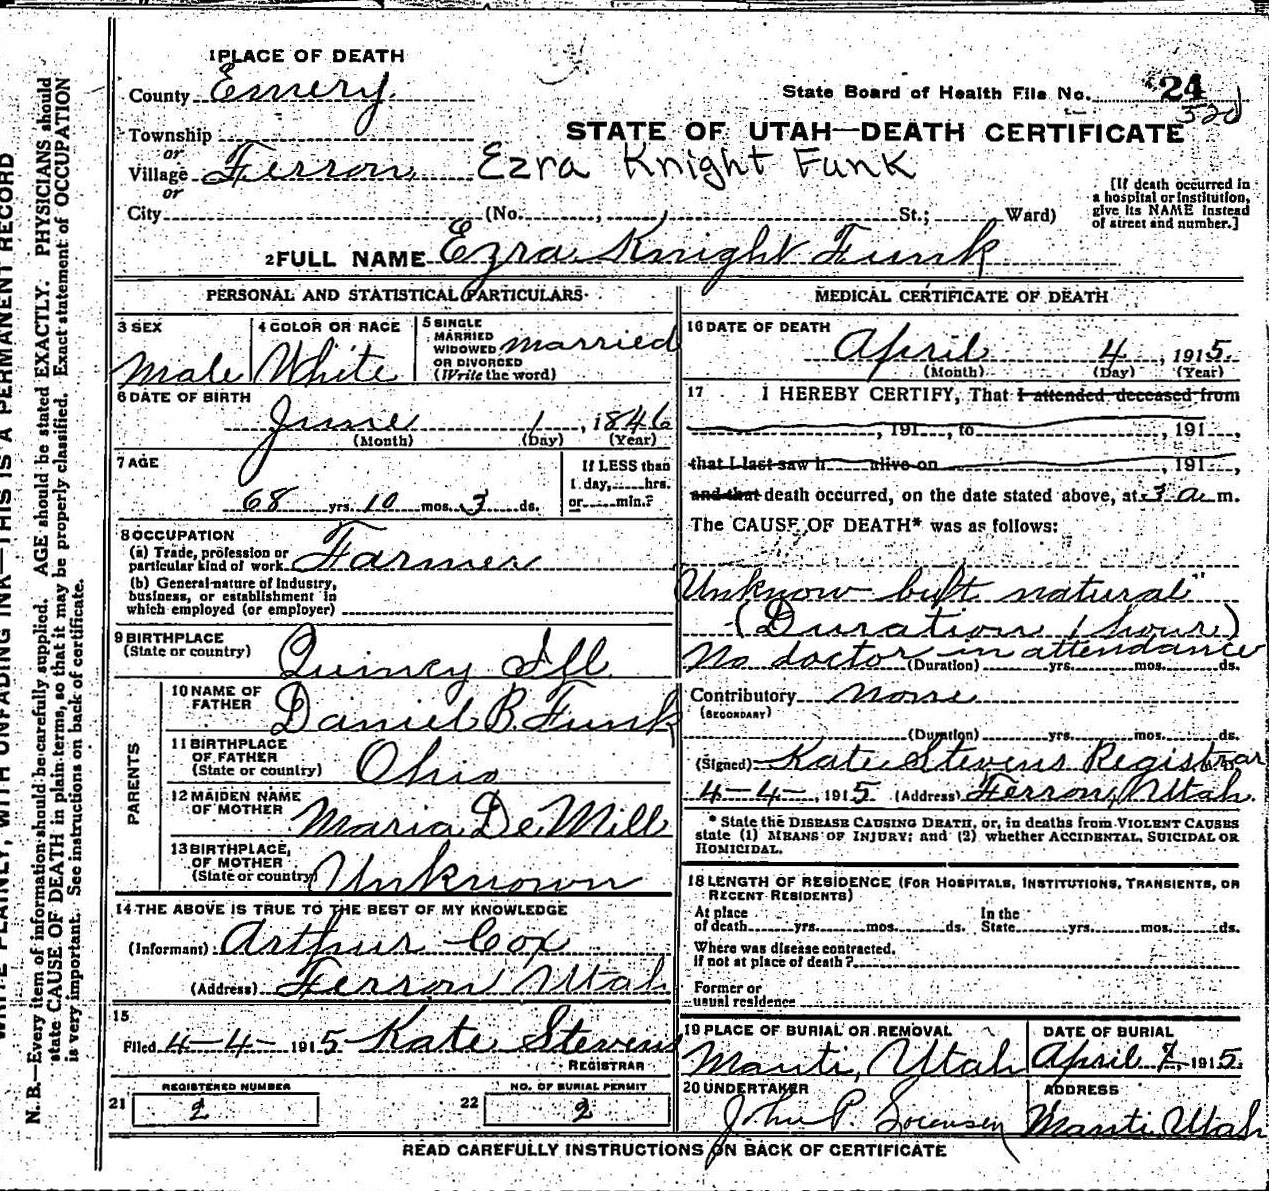 1 PLACE OF DEATH
County Emery.
State Board of Health File No. 24
320
Township
or
STATE OF UTAH—DEATH CERTIFICATE
Village Ferron Ezra Knight Funk
or
City (No. , St.; Ward)
[If death occurred in
a hospital or institution,
give its NAME instead
of street and number.]
2 FULL NAME Ezra Knight Funk
PERSONAL AND STATISTICAL PARTICULARS
3 SEX
Male
4 COLOR OR RACE
White
5 SINGLE
MARRIED
WIDOWED
OR DIVORCED
(Write the word)
married
6 DATE OF BIRTH
June 1, 1846
(Month) (Day) (Year)
7 AGE
68 yrs. 10 mos. 3 ds.
If LESS than
1 day, hrs.
or min.?
8 OCCUPATION
(a) Trade, profession or
particular kind of work Farmer
(b) General nature of industry,
business, or establishment in
which employed (or employer)
9 BIRTHPLACE
(State or country) Quincy Ill
PARENTS
10 NAME OF
FATHER Daniel B. Funk
11 BIRTHPLACE
OF FATHER
(State or country) Ohio
12 MAIDEN NAME
OF MOTHER Maria De Mill
13 BIRTHPLACE,
OF MOTHER
(State or country) Unknown
14 THE ABOVE IS TRUE TO THE BEST OF MY KNOWLEDGE
(Informant) Arthur Cox
(Address) Ferron Utah
15
Filed 4-4- 1915 Kate Stevens
REGISTRAR
REGISTERED NUMBER
21 2
NO. OF BURIAL PERMIT
22 2
MEDICAL CERTIFICATE OF DEATH
16 DATE OF DEATH
April 4, 1915.
(Month) (Day) (Year)
17 I HEREBY CERTIFY, That I attended deceased from
, 191 , to , 191 ,
that I last saw h alive on , 191 ,
and that death occurred, on the date stated above, at 3 a. m.
The CAUSE OF DEATH* was as follows:
Unknow but natural"
(Duration 1 hour)
No doctor in attendance
(Duration) yrs. mos. ds.
Contributory none
(SECONDARY)
(Duration) yrs. mos. ds.
(Signed) Kate Stevens Registrar
4-4-, 1915 (Address) Ferron, Utah.
* State the DISEASE CAUSING DEATH, or, in deaths from VIOLENT CAUSES
state (1) MEANS OF INJURY; and (2) whether ACCIDENTAL, SUICIDAL OR
HOMICIDAL.
18 LENGTH OF RESIDENCE (FOR HOSPITALS, INSTITUTIONS, TRANSIENTS, OR
RECENT RESIDENTS)
At place
of death yrs. mos. ds.
In the
State yrs. mos. ds.
Where was disease contracted.
If not at place of death?
Former or
usual residence
19 PLACE OF BURIAL OR REMOVAL
Manti, Utah
DATE OF BURIAL
April 7, 1915.
20 UNDERTAKER
John P. Sorensen
ADDRESS
Manti Utah
READ CAREFULLY INSTRUCTIONS ON BACK OF CERTIFICATE
WRITE PLAINLY, WITH UNFADING INK—THIS IS A PERMANENT RECORD
N. B.—Every item of information should be carefully supplied. AGE should be stated EXACTLY. PHYSICIANS should
state CAUSE OF DEATH in plain terms, so that it may be properly classified. Exact statement of OCCUPATION
is very important. See instructions on back of certificate.